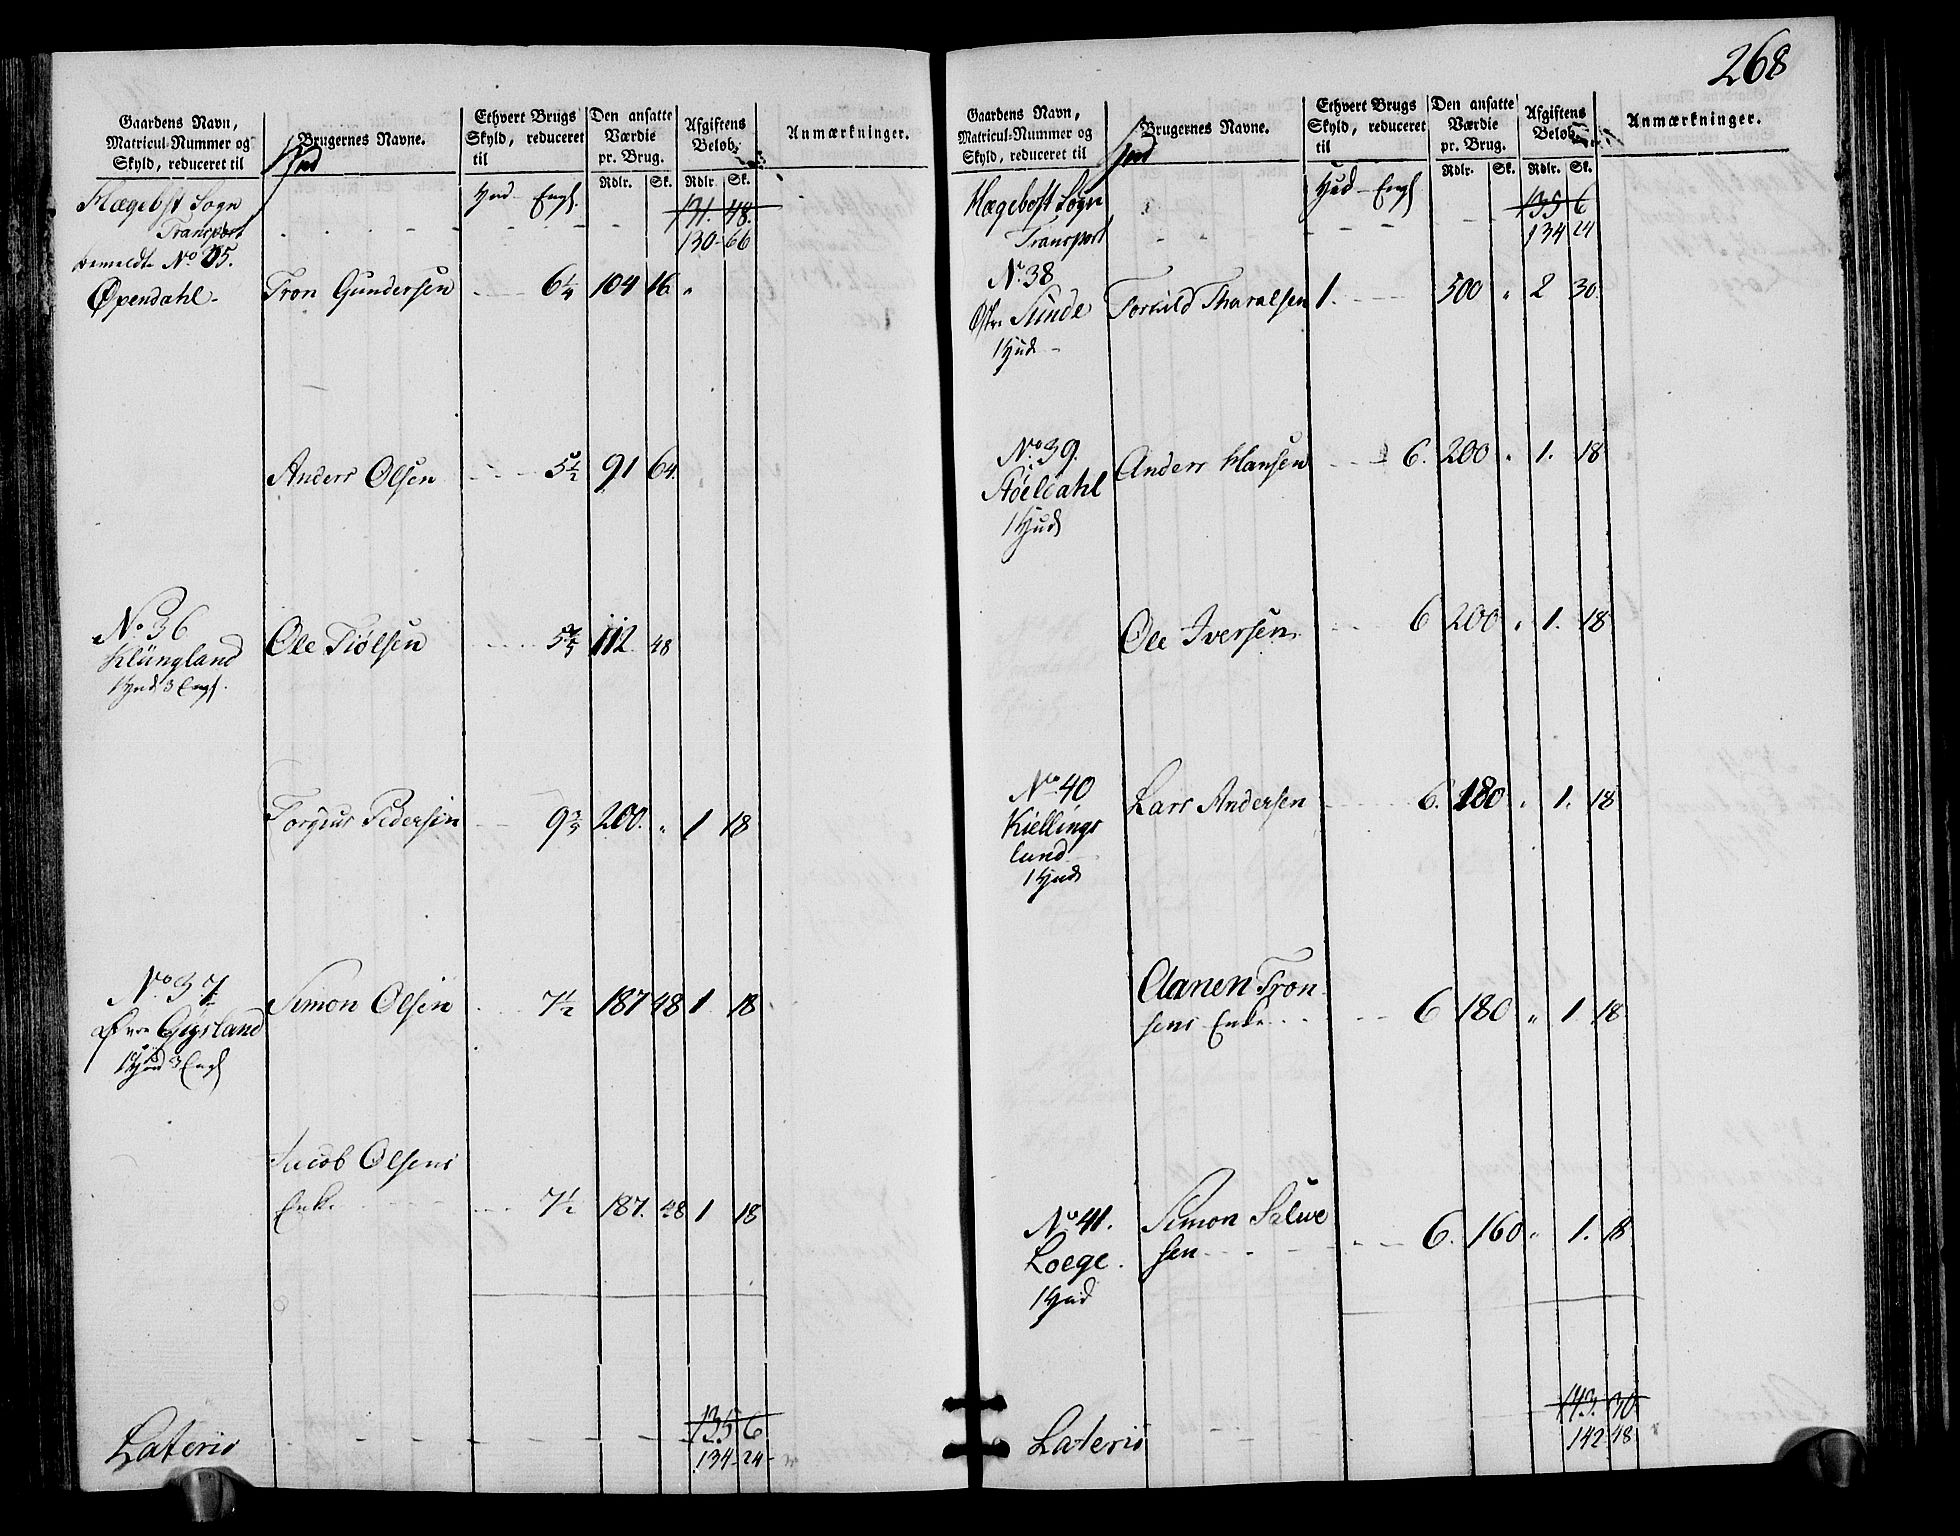 268
Gaardens Navn, Matricul-Nummer og Skyld, reduceret til
Brugernes Navne.
Ethvert Brugs Skyld, reduceret til
Den ansatte Værdie pr. Brug.
Afgiftens Beløb.
Anmærkninger.
Hud
Rdlr. Sk. Rdlr. Sk.
Hægebst Sogn Hud Engl. 131. 48.
Transport 130-66
No 35.
Øpendahl Tron Gundersen 6¼ 104 16 "
Anders Olsen 5½ 91 64.
No. 36 Ole Tiølsen 5¾ 112. 48
Klüngland
1 Hud 3 Engl.
Pedersen 9¾ 200. " 1 18
No. 37 Simon Olsen 7½ 187 48 1 18
Gÿsland
1 Hud 3 Engl
Jacob Olsens
Enke 7½ 187. 48 1 18
135 6
Lateris 134-24
Gaardens Navn, Matricul-Nummer og Skyld, reduceret til
Brugernes Navne.
Ethvert Brugs Skyld, reduceret til
Den ansatte Værdie pr. Brug.
Afgiftens Beløb.
Anmærkninger.
Hud
Rdlr. Sk. Rdlr. Sk.
Hægebost Sogn Hud Engl 135 6
Transport 134 24
No. 38
Sünde Tharalsen 1. 500 " 2 30.
1 Hud
No. 39. Anders Hansen 6. 200 " 1. 18
Støeldahl
1 Hud
Ole Iversen 6 200 " 1. 18
No. 40 Lars Andersen 6. 180 " 1. 18
Kiellings
land
1 Hud
Aanen Tron
sens Enke 6 180 " 1. 18
No 41. Simon Salve
Loege. sen 6. 160 " 1. 18
1 Hud
143. 30
Lateris 142 48